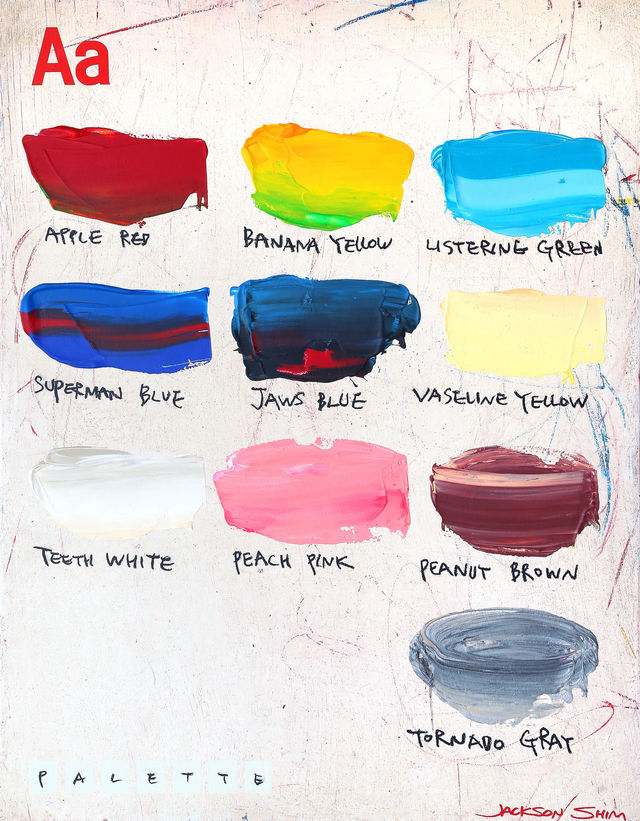 Aa
APPLE RED
BANANA YELLOW
LISTERING GREEN
SUPERMAN BLUE
JAWS BLUE
VASELINE YELLOW
TEETH WHITE
PEACH PINK
PEANUT BROWN
TORNADO GRAY
PALETTE
JACKSON SHIM